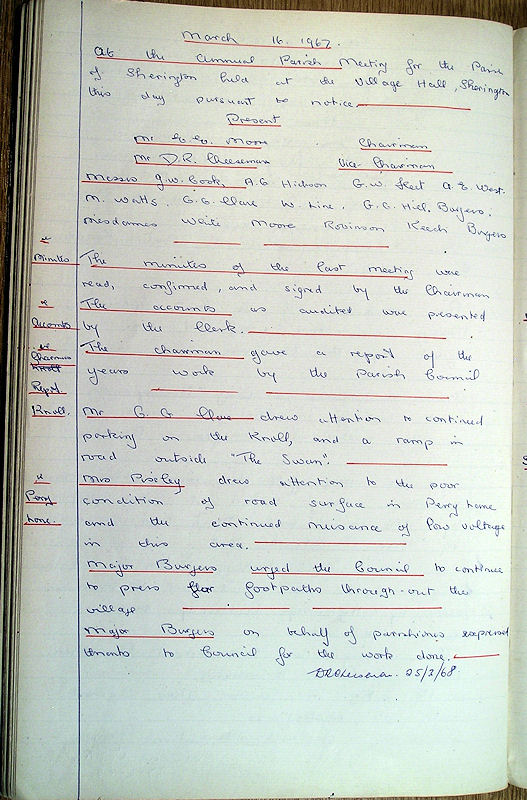 March 16. 1967.
At the Annual Parish Meeting for the Parish
of Sherington held at the Village Hall, Sherington
this day pursuant to notice.
Present
Mr E. Moore Chairman
Mr D.R. Cheeseman Vice-Chairman
Messrs J.W. Cook, A.G. Hickson G.W. A.E. West.
M. Watts. G.G. W. Line. G.C. Burgers.
Mesdames White Moore Robinson Keech Burgers
Minutes The minutes of the last meeting were
read, confirmed, and signed by the Chairman
The accounts as audited was presented
Accounts by the Clerk.
Chairmans The chairman gave a report of the
Knoll years work by the Parish Council
Report
Knoll. Mr G. G drew attention to continued
parking on the Knoll, and a ramp in
road outside "The Swan".
Mrs drew attention to the poor
Perry condition of road surface in Perry Lane
Lane. and the continued nuisance of low voltage
in this area.
Major Burgers urged the Council to continue
to press for footpaths through-out the
village
Major Burgers on behalf of parishiones expressed
thanks to Council for the work done.
DRCheeseman. 25/3/68.